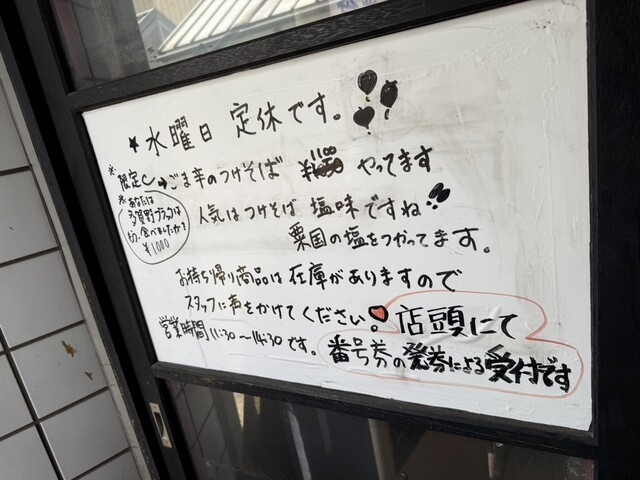 ★水曜日 定休です。
※限定 ごま辛のつけそば ¥1100 やってます
※あなたは
多賀野ブラックは
食べましたか?
¥1000
人気はつけそば 塩味ですね!!
粟国の塩をつかってます。
お持ち帰り商品は在庫がありますので
スタッフに声をかけてください!
営業時間 11:30〜14:30です。
店頭にて
番号券の発券による受付です